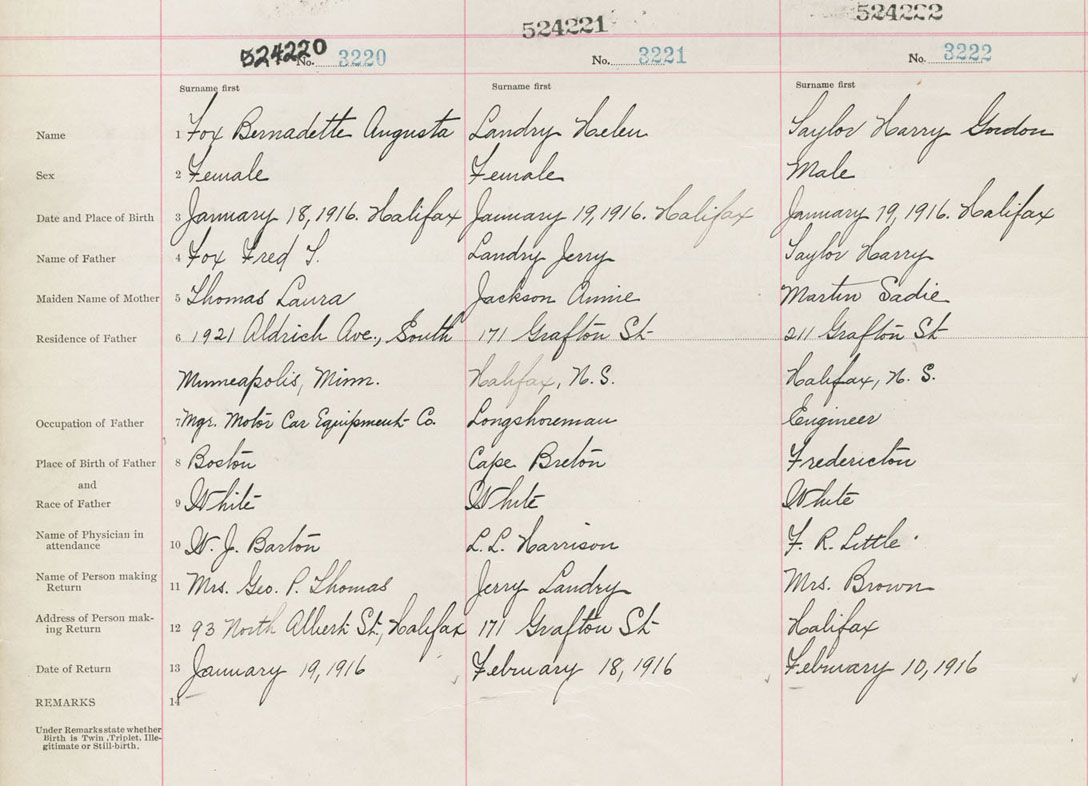 524220 524221 524222
No. 3220 No. 3221 No. 3222
Surname first Surname first Surname first
Name 1 Fox Bernadette Augusta Landry Helen Taylor Harry Gordon
Sex 2 Female Female Male
Date and Place of Birth 3 January 18, 1916. Halifax January 19, 1916. Halifax January 19, 1916. Halifax
Name of Father 4 Fox Fred T. Landry Jerry Taylor Harry
Maiden Name of Mother 5 Thomas Laura Jackson Annie Martin Sadie
Residence of Father 6 1921 Aldrich Ave., South 171 Grafton St 211 Grafton St
Minneapolis, Minn. Halifax, N.S. Halifax, N.S.
Occupation of Father 7 Mgr. Motor Car Equipment Co. Longshoreman Engineer
Place of Birth of Father 8 Boston Cape Breton Fredericton
and
Race of Father 9 White White White
Name of Physician in
attendance 10 W. J. Barton L.L. Harrison F. R. Little
Name of Person making
Return 11 Mrs. Geo. P. Thomas Jerry Landry Mrs. Brown
Address of Person mak-
ing Return 12 93 North Albert St., Halifax 171 Grafton St Halifax
Date of Return 13 January 19, 1916 February 18, 1916 February 10, 1916
REMARKS 14
Under Remarks state whether
Birth is Twin, Triplet, Ille-
gitimate or Still-birth.